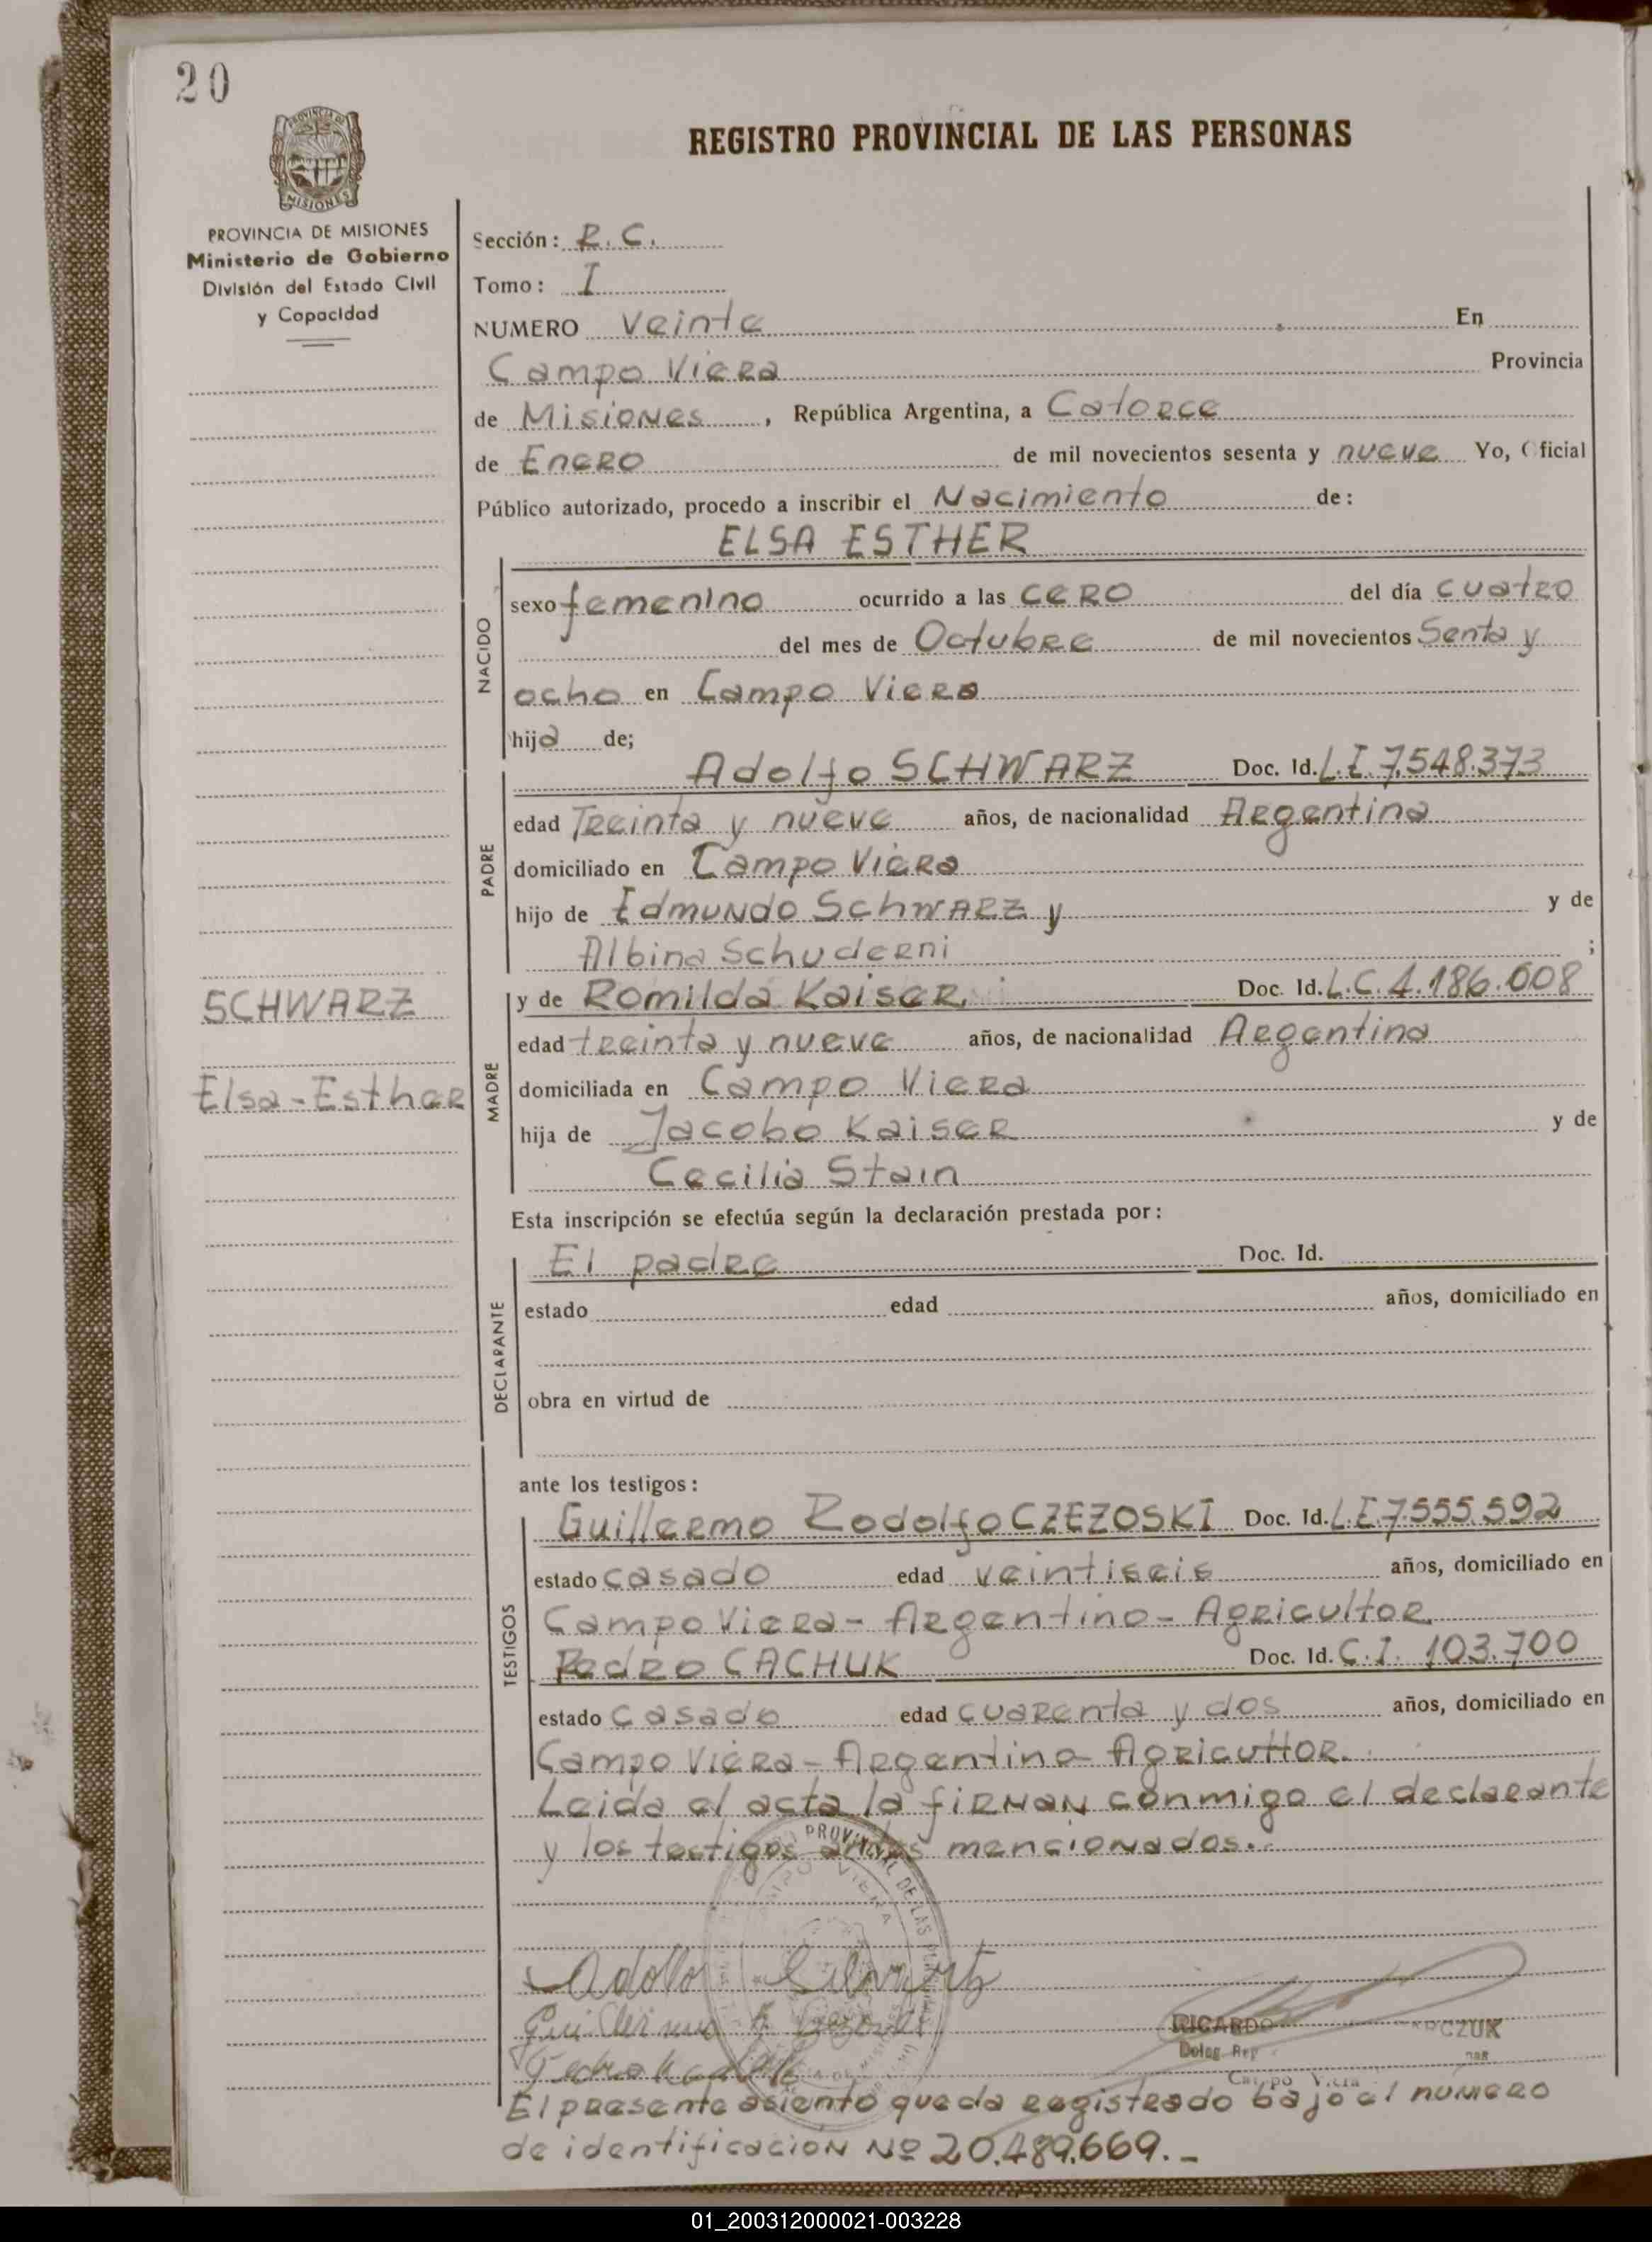 20
PROVINCIA DE
MISIONES
REGISTRO PROVINCIAL DE LAS PERSONAS
PROVINCIA DE MISIONES
Ministerio de Gobierno
División del Estado Civil
y Capacidad
Sección: R. C.
Tomo: I
NUMERO Veinte En
Campo Viera Provincia
de Misiones, República Argentina, a Catorce
de Enero de mil novecientos sesenta y nueve Yo, Oficial
Público autorizado, procedo a inscribir el Nacimiento de:
ELSA ESTHER
NACIDO
sexo femenino ocurrido a las cero del día cuatro
del mes de Octubre de mil novecientos Senta y
ocho en Campo Viera
hija de;
PADRE
Adolfo SCHWARZ Doc. Id. L.E. 7.548.373
edad Treinta y nueve años, de nacionalidad Argentina
domiciliado en Campo Viera
hijo de Edmundo SchWARZ y y de
Albina Schuderni ;
SCHWARZ
Elsa-Esther
MADRE
y de Romilda Kaiser. Doc. Id. L.C. 4.186.008
edad treinta y nueve años, de nacionalidad Argentina
domiciliada en Campo Viera
hija de Jacobo Kaiser y de
Cecilia Stain
Esta inscripción se efectúa según la declaración prestada por:
DECLARANTE
El padre Doc. Id.
estado edad años, domiciliado en
obra en virtud de
ante los testigos:
TESTIGOS
Guillermo Rodolfo CZEZOSKI Doc. Id. L.E. 7.555.592
estado casado edad veintiseis años, domiciliado en
Campo Viera - Argentino - Agricultor
Pedro CACHUK Doc. Id. C.I. 103.700
estado casado edad cuarenta y dos años, domiciliado en
Campo Viera - Argentino Agricultor.
Leida el acta la firman conmigo el declarante
y los testigos antes mencionados.
PROVINCIAL DE LAS
Adolfo Schwartz
RICARDO
Deleg. Rep
Campo Viera
El presente asiento queda registrado bajo el numero
de identificacion Nº 20.489.669.-
01_200312000021-003228